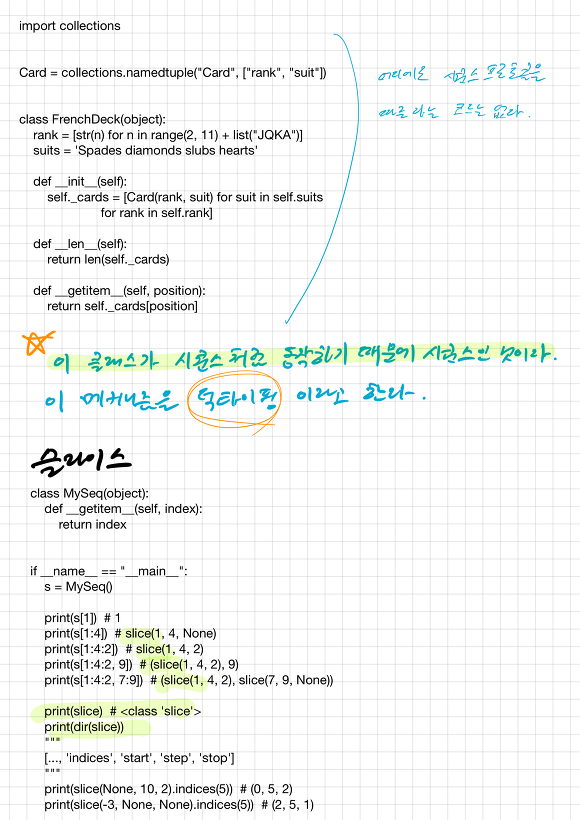 import collections
Card = collections.namedtuple("Card", ["rank", "suit"])
어디에도 시퀀스 프로토콜을
따르라는 코드는 없다.
class FrenchDeck(object):
    rank = [str(n) for n in range(2, 11) + list("JQKA")]
    suits = 'Spades diamonds slubs hearts'
    def __init__(self):
        self._cards = [Card(rank, suit) for suit in self.suits
                       for rank in self.rank]
    def __len__(self):
        return len(self._cards)
    def __getitem__(self, position):
        return self._cards[position]
이 클래스가 시퀀스처럼 동작하기 때문에 시퀀스인 것이라.
이 메커니즘을 덕타이핑 이라고 한다.
슬라이스
class MySeq(object):
    def __getitem__(self, index):
        return index
if __name__ == "__main__":
    s = MySeq()
    print(s[1])  # 1
    print(s[1:4])  # slice(1, 4, None)
    print(s[1:4:2])  # slice(1, 4, 2)
    print(s[1:4:2, 9])  # (slice(1, 4, 2), 9)
    print(s[1:4:2, 7:9])  # (slice(1, 4, 2), slice(7, 9, None))
    print(slice)  # <class 'slice'>
    print(dir(slice))
    """
    [..., 'indices', 'start', 'step', 'stop']
    """
    print(slice(None, 10, 2).indices(5))  # (0, 5, 2)
    print(slice(-3, None, None).indices(5))  # (2, 5, 1)